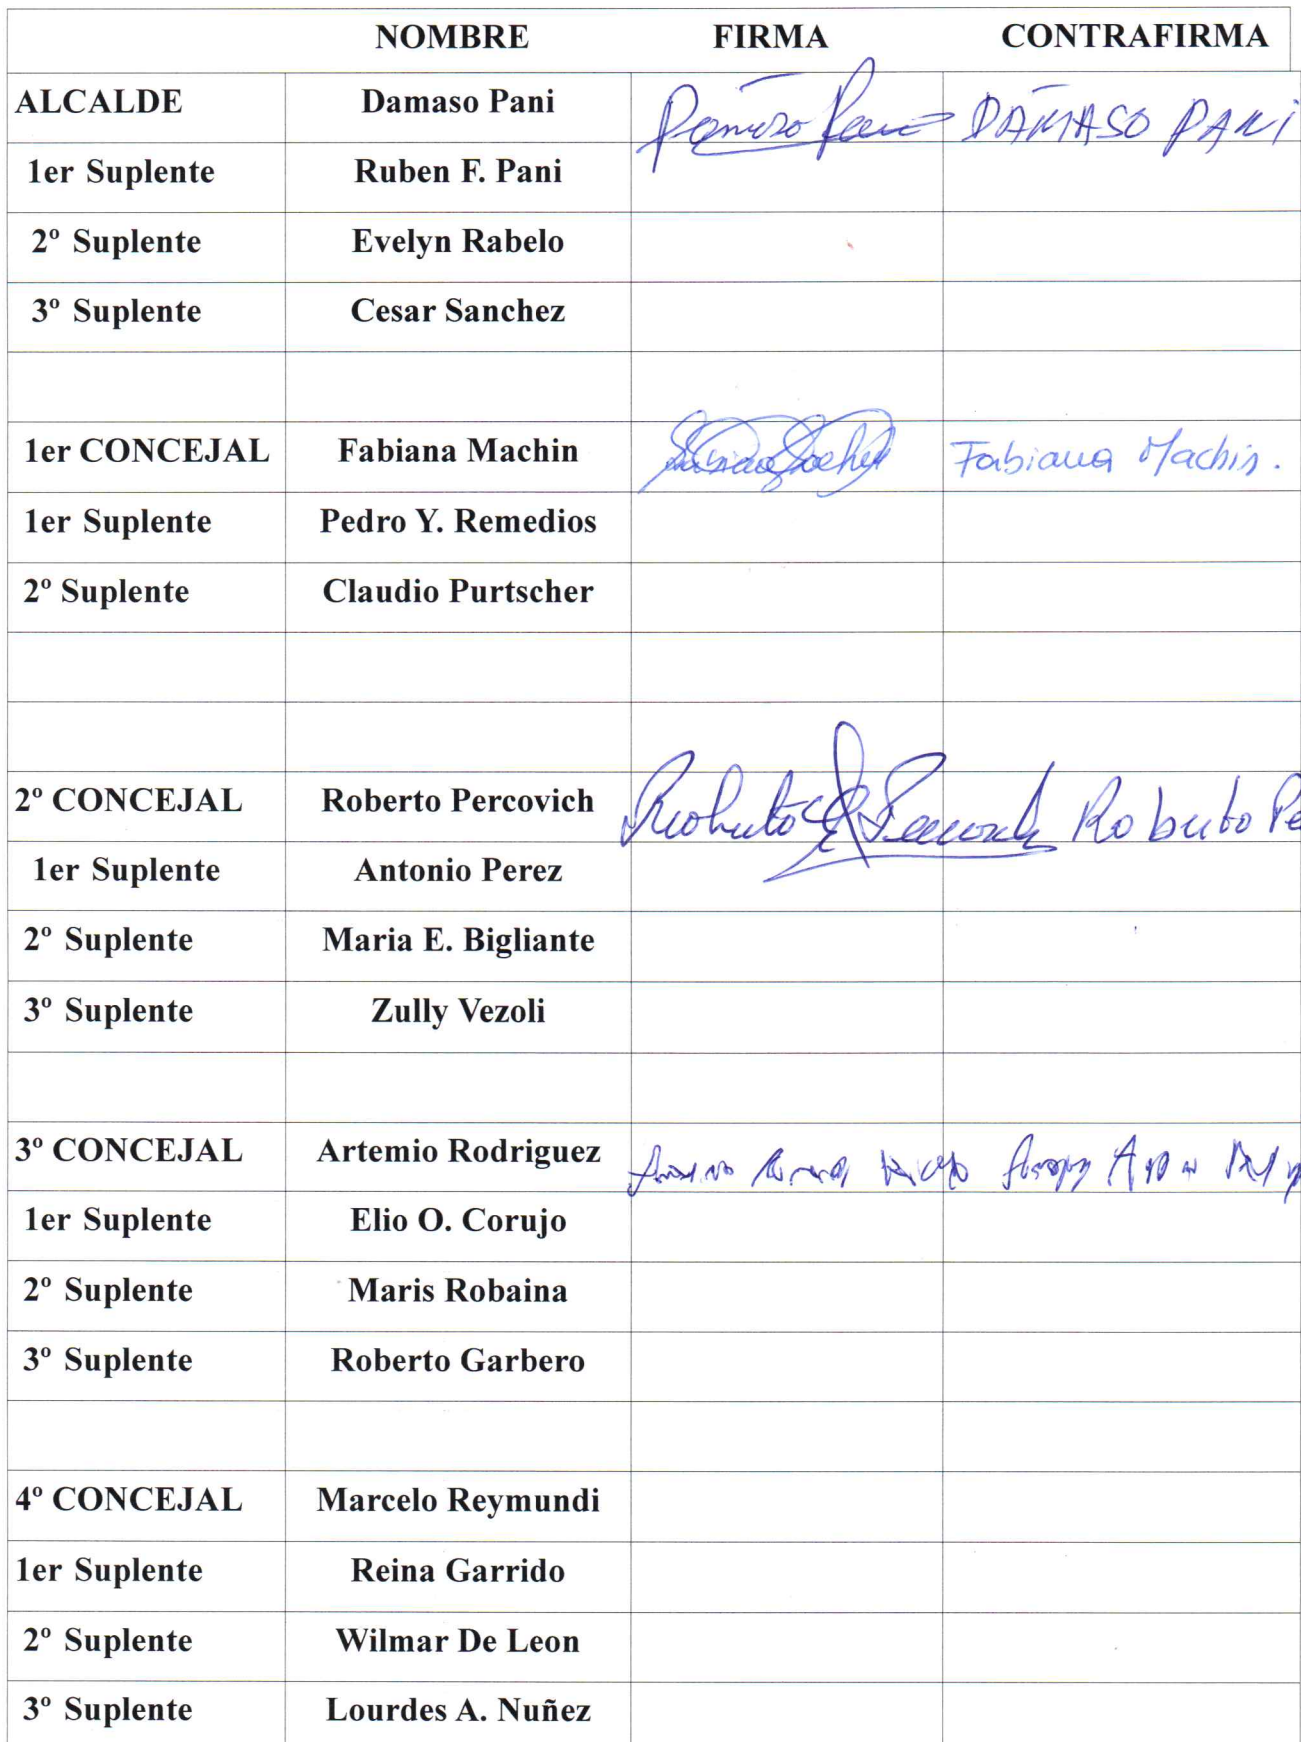 NOMBRE FIRMA CONTRAFIRMA
ALCALDE Damaso Pani Damaso Pani DAMASO PANI
1er Suplente Ruben F. Pani
2º Suplente Evelyn Rabelo
3º Suplente Cesar Sanchez
1er CONCEJAL Fabiana Machin Fabiana Machin.
1er Suplente Pedro Y. Remedios
2º Suplente Claudio Purtscher
2º CONCEJAL Roberto Percovich Roberto Roberto Pe
1er Suplente Antonio Perez
2º Suplente Maria E. Bigliante
3º Suplente Zully Vezoli
3º CONCEJAL Artemio Rodriguez
1er Suplente Elio O. Corujo
2º Suplente Maris Robaina
3º Suplente Roberto Garbero
4º CONCEJAL Marcelo Reymundi
1er Suplente Reina Garrido
2º Suplente Wilmar De Leon
3º Suplente Lourdes A. Nuñez